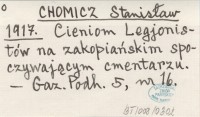 o CHOMICZ Stanisław
1917. Cieniom Legjonis-
tów na zakopiańskim spo-
czywającym cmentarzu.
– Gaz. Podh. 5, nr 16.